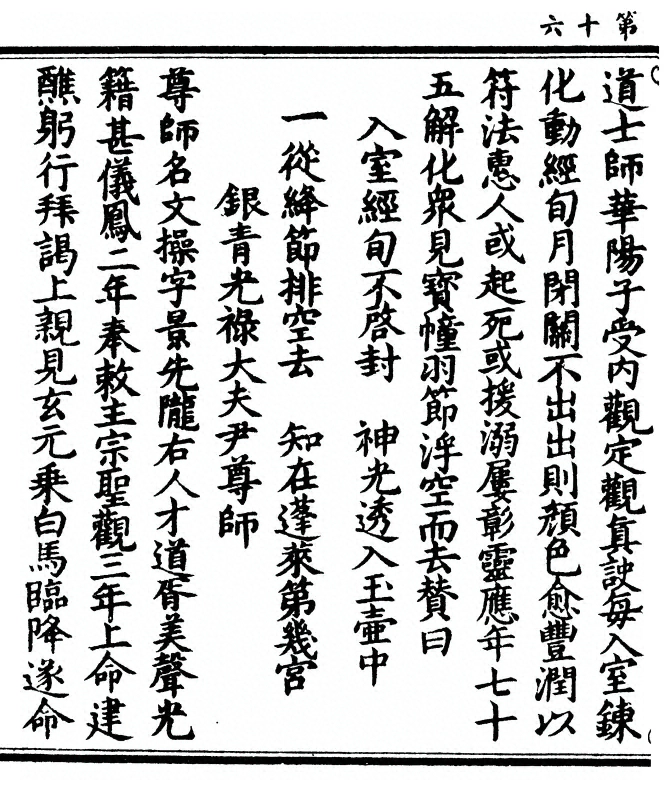 第十六
道士師華陽子受内觀定觀真訣每入室鍊
化動經旬月閉關不出出則顏色愈豐潤以
符法惠人或起死或援溺屢彰靈應年七十
五解化衆見寶幢羽節浮空而去贊曰
入室經旬不啓封　神光透入玉壺中
一從絳節排空去　知在蓬萊第幾宮
銀青光祿大夫尹尊師
尊師名文操字景先隴右人才道胥美聲光
籍甚儀鳳二年奉敕主宗聖觀三年上命建
醮躬行拜謁上親見玄元乘白馬臨降遂命